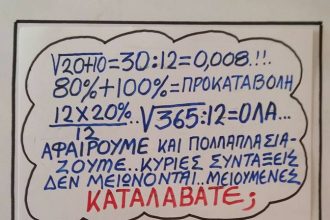 √20+10=30:12=0,008.!!.
80%+100%=ΠΡΟΚΑΤΑΒΟΛΗ
12Χ20%..√365:12=ΟΛΑ...
12
ΑΦΑΙΡΟΥΜΕ ΚΑΙ ΠΟΛΛΑΠΛΑΣΙΑ-
ΖΟΥΜΕ..ΚΥΡΙΕΣ ΣΥΝΤΑΞΕΙΣ
ΔΕΝ ΜΕΙΩΝΟΝΤΑΙ..ΜΕΙΟΥΜΕΝΕΣ
ΚΑΤΑΛΑΒΑΤΕ;